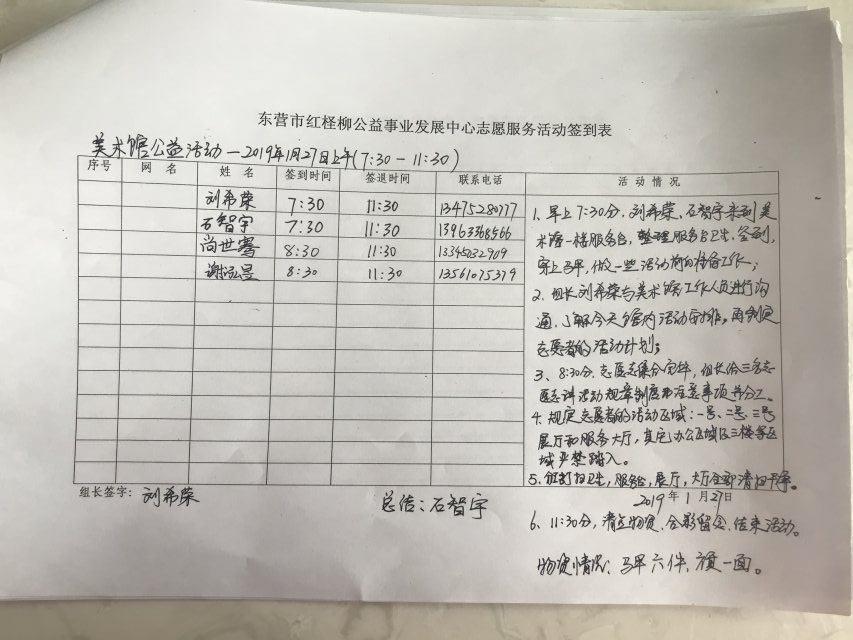 东营市红柽柳公益事业发展中心志愿服务活动签到表
美术馆公益活动—2019年1月27日上午(7:30-11:30)
序号 网 名 姓 名 签到时间 签退时间 联系电话 活 动 情 况
刘希荣 7:30 11:30 13475280777
石智宇 7:30 11:30 13963368566
尚世骞 8:30 11:30 13345032909
谢泓昱 8:30 11:30 13561075379
1、早上7:30分,刘希荣、石智宇来到美
术馆一楼服务台,整理服务台卫生,签到,
穿上马甲,做一些活动前的准备工作;
2、组长刘希荣与美术馆工作人员进行沟
通,了解今天馆内活动安排,再制定
志愿者的活动计划;
3、8:30分,志愿者集合完毕,组长给三名志
愿者讲活动规章制度和注意事项并分工。
4、规定志愿者的活动区域:一号、二号、三号
展厅和服务大厅,其它办公区域及三楼等区
域严禁踏入。
5、打扫卫生,服务台,展厅,大厅全部清扫干净。
组长签字:刘希荣
总结:石智宇
2019年1月27日
6、11:30分,清点物资,合影留念,结束活动。
物资情况:马甲六件,旗一面。